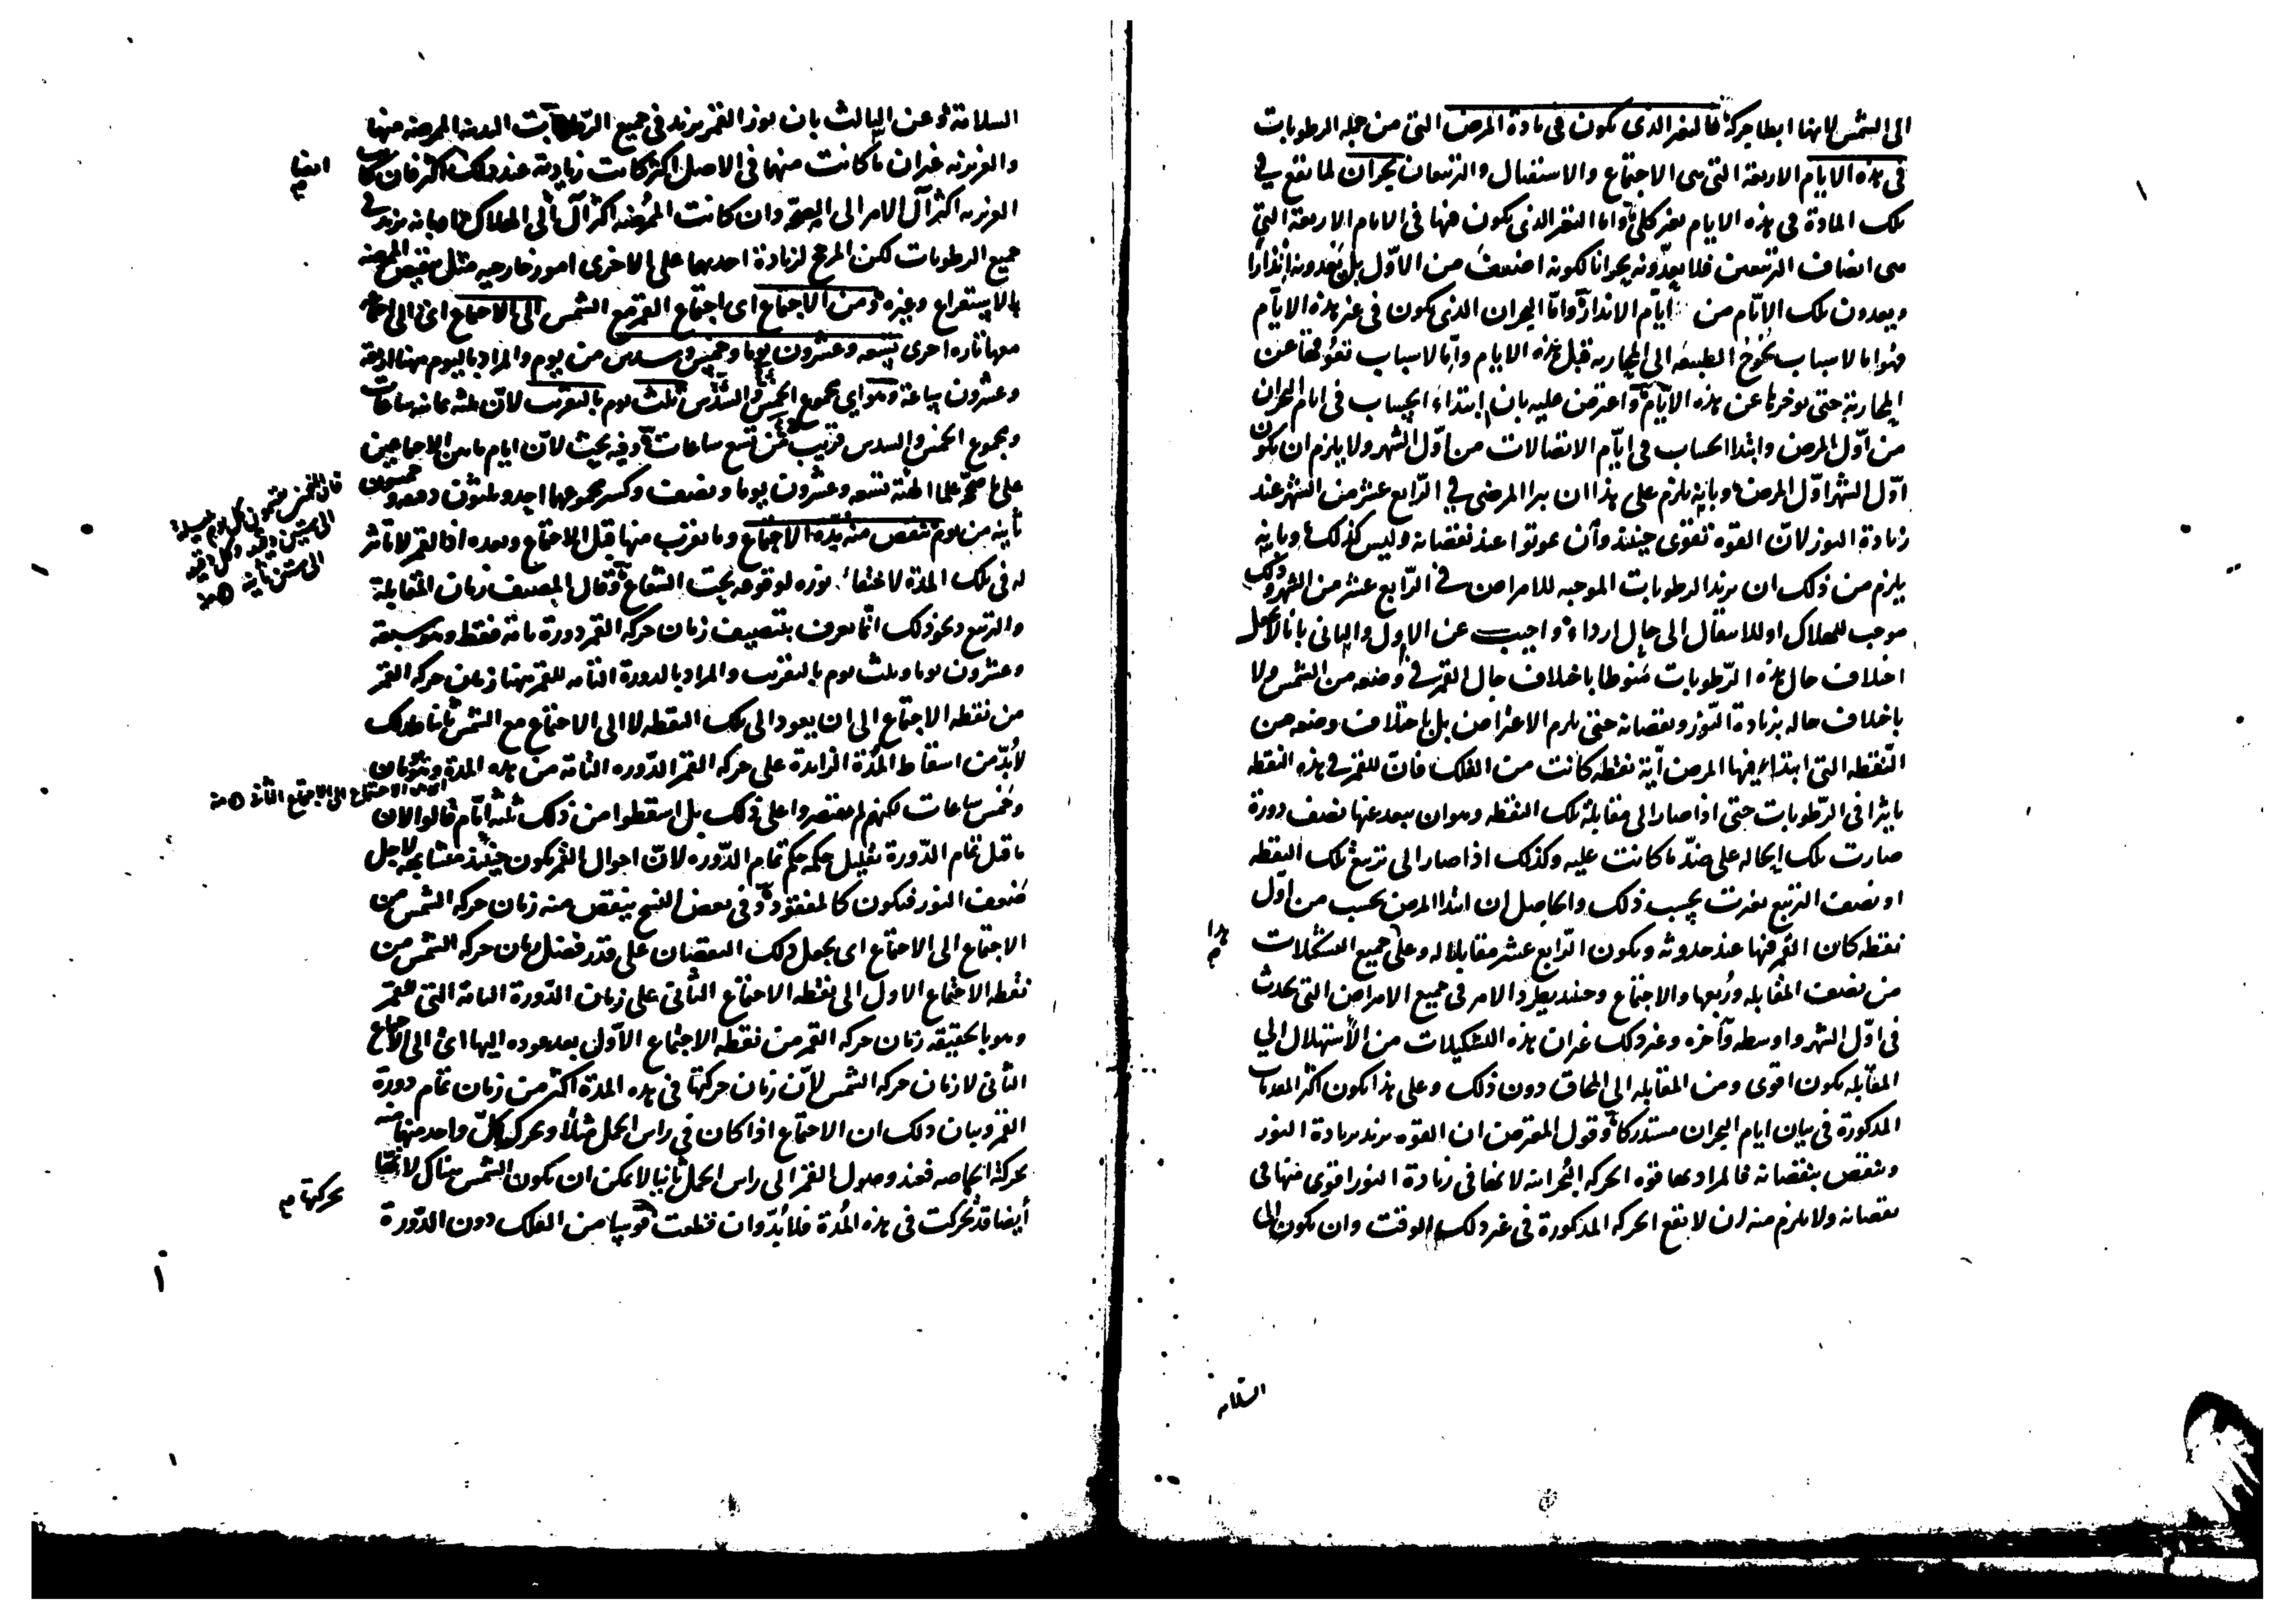 الى الشمس لانها ابطا حركة فالتغير الذى يكون فى مادة المرض التى من جملة الرطوبات
فى هذه الايام الاربعة التى هى الاجتماع والاستقبال والتربيعان بحران لما يقع فى
تلك المادة فى هذه الايام تغير كلى واما التغير الذى يكون فيها فى الايام الاربعة التى
هى انصاف التربيعين فلا يعدونه بحرانا لكونه اضعف من الاول بل يعدونه انذارا
ويعدون تلك الايام من ايام الانذار واما البحران الذى يكون فى غير هذه الايام
فهو اما لاسباب تحوج الطبيعه الى المحاربه قبل هذه الايام واما لاسباب تعوقها عن
المحاربة حتى توخرها عن هذه الايام واعترض عليه بان ابتداء الحساب فى ايام البحران
من اول المرض وابتدا الحساب فى ايام الاتصالات من اول الشهر ولا يلزم ان يكون
اول الشهر اول المرض وبانه يلزم على هذا ان يبرا المرضى فى الرابع عشر من الشهر عند
زيادة النور لان القوة تقوى حينئذ وان يموتوا عند نقصانه وليس كذلك وبانه
يلزم من ذلك ان يزيد الرطوبات الموجبه للامراض فى الرابع عشر من الشهر وذلك
موجب للهلاك او للانتقال الى حال ارداء واجيب عن الاول والثانى بانا لا نجعل
اختلاف حال هذه الرطوبات منوطا باختلاف حال القمر فى وضعه من الشمس ولا
باختلاف حاله بزيادة النور ونقصانه حتى يلزم الاعتراض بل باختلاف وضعه من
النقطه التى ابتداء فيها المرض اية نقطه كانت من الفلك فان للقمر فى هذه النقطه
تاثيرا فى الرطوبات حتى اذا صار الى مقابلة تلك النقطه وهو ان يبعد عنها نصف دورة
صارت تلك الحاله على ضد ما كانت عليه وكذلك اذا صار الى تربيع تلك النقطه
او نصف التربيع تغيرت بحسب ذلك والحاصل ان ابتدا المرض يحسب من اول
نقطه كان القمر فيها عند حدوثه ويكون الرابع عشر مقابلا له وعلى هذا جميع التشكلات
من نصف المقابله وربعها والاجتماع وحينئذ يطرد الامر فى جميع الامراض التى تحدث
فى اول الشهر واوسطه وآخره وغير ذلك غير ان هذه التشكيلات من الاستهلال الى
المقابله يكون اقوى ومن المقابله الى المحاق دون ذلك وعلى هذا يكون اكثر المقدمات
المذكورة فى بيان ايام البحران مستدركا وقول المعترض ان القوه يزيد بزيادة النور
وينقص بنقصانه فالمراد بها قوه الحركه البحرانيه لانها فى زيادة النور اقوى منها فى
نقصانه ولا يلزم منه ان لا يقع الحركه المذكورة فى غير ذلك الوقت وان يكون الى
السلامه
السلامة وعن الثالث بان نور القمر يزيد فى جميع الرطوبات البدنيه الممرضه منها
والغريزيه غير ان ما كانت منها فى الاصل اكثر كانت زيادته عند ذلك ايضا اكثر فان كانت
الغريزيه اكثر آل الامر الى الصحة وان كانت الممرضه اكثر آل الى الهلاك
جميع الرطوبات لكن المرجح لزيادة احديهما على الاخرى امور خارجيه مثل تنقيص الممرضه
بالاستفراغ وغيره ومن الاجتماع اى اجتماع القمر مع الشمس الى الاجتماع اى الى اجتماعه
معها تاره اخرى تسعه وعشرون يوما وخمس وسدس من يوم والمراد باليوم ههنا اربعة
وعشرون ساعة وهو اى مجموع الخمس والسدس ثلث يوم بالتقريب لان ثلثه ثمانيه ساعات
ومجموع الخمس والسدس قريب من تسع ساعات وفيه بحث لان ايام ما بين الاجتماعين
على ما صححه علما الهيئة تسعه وعشرون يوما ونصف وكسر مجموعهما احد وثلثون دقيقه وخمسون
ثانيه من يوم تنقص منه مدة الاجتماع وما يقرب منها قبل الاجتماع وبعده اذ القمر لا تاثير
له فى تلك المدة لاختفاء نوره لوقوعه تحت الشعاع وقال المصنف زمان المقابلة
والتربيع ونحو ذلك انما يعرف بتنصيف زمان حركه القمر دورة تامة فقط وهو سبعة
وعشرون يوما وثلث يوم بالتقريب والمراد بالدورة التامه للقمر ههنا زمان حركه القمر
من نقطه الاجتماع الى ان يعود الى تلك النقطه لا الى الاجتماع مع الشمس ثانيا فلذلك
لابد من اسقاط المدة الزايدة على حركه القمر الدوره التامة من هذه المدة وهو يومان
وخمس ساعات لكنهم لم يقتصروا على ذلك بل اسقطوا من ذلك ثلثه ايام قالوا لان
ما قبل تمام الدورة بقليل حكمه حكم تمام الدوره لان احوال القمر يكون حينئذ متشابهه لاجل
ضعف النور فيكون كالمفقود وفى بعض النسخ ينقص منه زمان حركه الشمس من
الاجتماع الى الاجتماع اى يجعل ذلك النقصان على قدر فضل زمان حركه الشمس من
نقطه الاجتماع الاول الى نقطه الاجتماع الثانى على زمان الدورة التامة التى للقمر
وهو بالحقيقه زمان حركه القمر من نقطه الاجتماع الاول بعد عوده اليها اى الى الاجتماع
الثانى لا زمان حركه الشمس لان زمان حركتها فى هذه المدة اكثر من زمان تمام دورة
القمر وبيان ذلك ان الاجتماع اذا كان فى راس الحمل مثلا وتحرك كل واحد منهما منه
بحركة الخاصه فعند وصول القمر الى راس الحمل ثانيا لا يمكن ان يكون الشمس هناك لانها
أيضا قد تحركت فى هذه المدة فلا بد وان قطعت قوسا من الفلك دون الدورة
ايضا
من الاجتماع الى الاجتماع الثانى منه
بحركتها